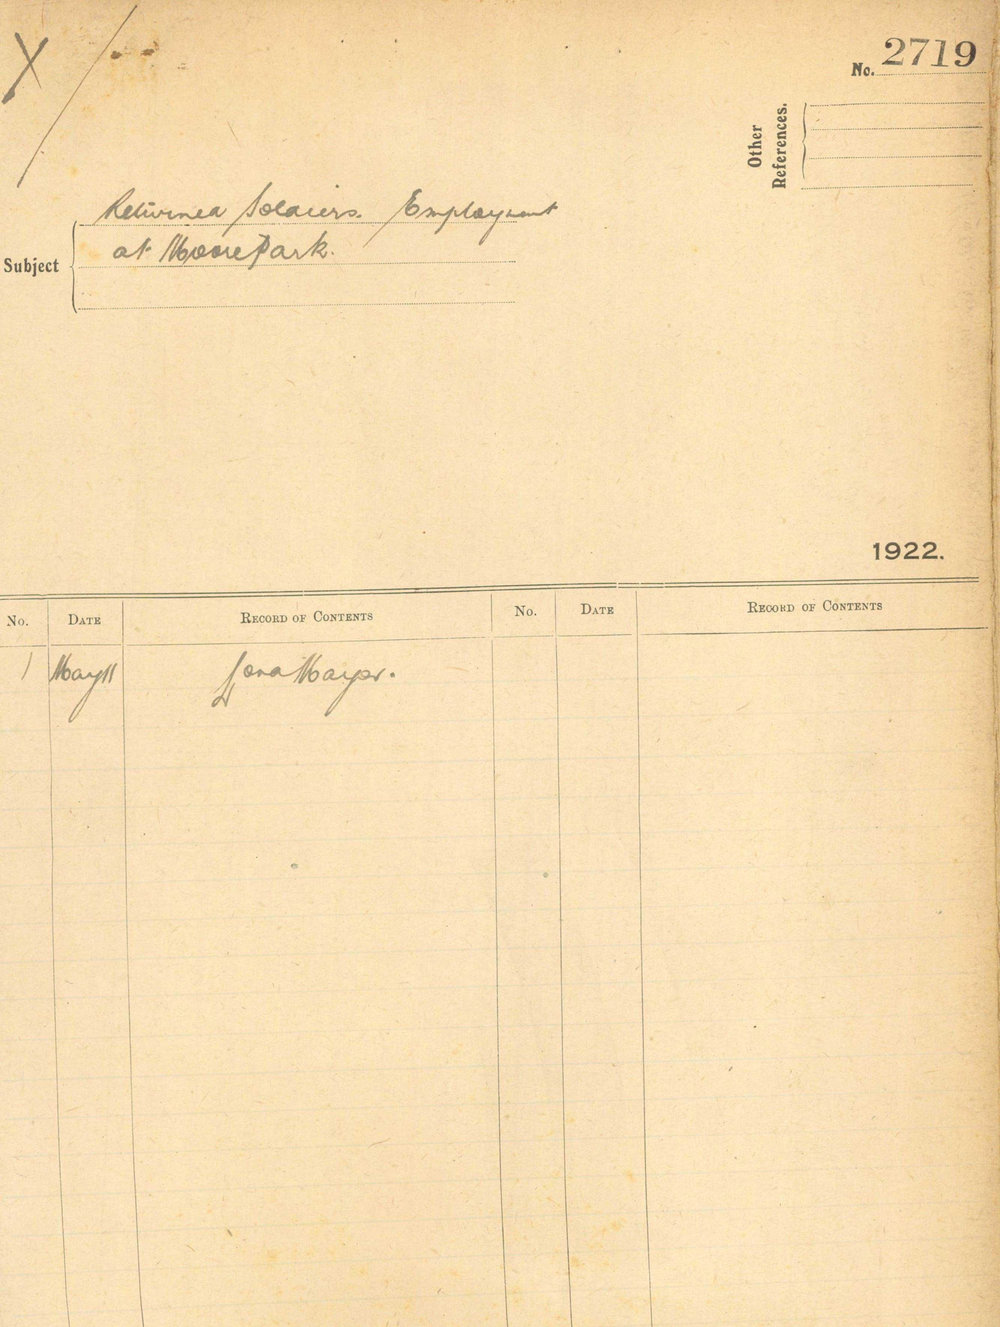 X
No. 2719
Other
References.
Returned Soldiers. Employment
at Moore Park.
Subject
1922.
No. DATE RECORD OF CONTENTS No. DATE RECORD OF CONTENTS
1 May 11 Lord Mayor.